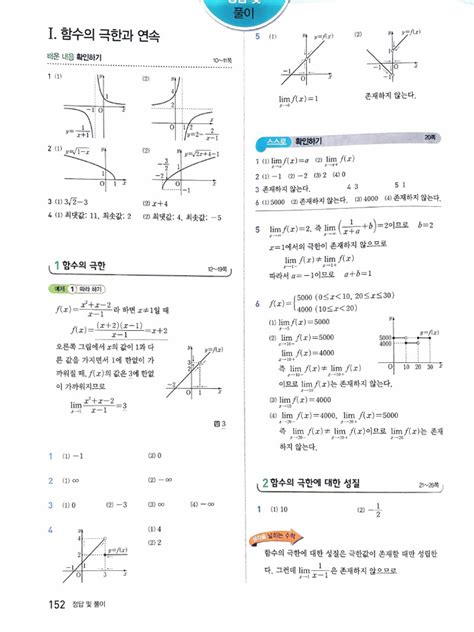 정답 및
풀이
I. 함수의 극한과 연속
배운 내용 확인하기
10~11쪽
1 (1)
(2)
y=1/(x+1)
2 (1)
y=√(1-x)
(2)
y=√(2x+4)-1
3 (1) ∛2-3 (2) x+4
4 (1) 최댓값: 11, 최솟값: 2 (2) 최댓값: 4, 최솟값: -5
1 함수의 극한
12~19쪽
예제 1 따라 하기
f(x)=(x²+x-2)/(x-1) 라 하면 x≠1일 때
f(x)=((x+2)(x-1))/(x-1)=x+2
오른쪽 그림에서 x의 값이 1과 다
른 값을 가지면서 1에 한없이 가
까워질 때, f(x)의 값은 3에 한없
이 가까워지므로
lim x→1 (x²+x-2)/(x-1)=3
y=f(x)
답 3
1 (1) -1 (2) 0
2 (1) -∞ (2) -∞
3 (1) 0 (2) -3 (3) 0 (4) ∞
4
y=f(x)
(1) 4
(2) 2
152 정답 및 풀이
5 (1)
y=f(x)
lim f(x)=1
(2)
y=f(x)
존재하지 않는다.
스스로 확인하기
20쪽
1 (1) lim f(x)=a (2) lim f(x)
2 (1) -1 (2) -2 (3) 2 (4) 0
3 존재하지 않는다. 4 3 5 1
6 (1) 5000 (2) 존재하지 않는다. (3) 4000 (4) 존재하지 않는다.
5 lim f(x)=2, 즉 lim (1/(x+a)+b)=2이므로 b=2
x=1에서의 극한이 존재하지 않으므로
lim f(x)≠lim f(x)
따라서 a=-1이므로 a+b=1
6 f(x)={5000 (0≤x<10, 20≤x≤30)
4000 (10≤x<20)
(1) lim f(x)=5000
(2) lim f(x)=5000
lim f(x)=4000
즉 lim f(x)≠lim f(x)
이므로 lim f(x)는 존재하지 않는다.
y=f(x)
5000
4000
0 10 20 30 x
(3) lim f(x)=4000
(4) lim f(x)=4000, lim f(x)=5000
즉 lim f(x)≠lim f(x)이므로 lim f(x)는 존재
하지 않는다.
2 함수의 극한에 대한 성질
21~26쪽
1 (1) 10 (2) -1/2
생각을 넓히는 수학
함수의 극한에 대한 성질은 극한값이 존재할 때만 성립한
다. 그런데 lim 1/(x-1) 은 존재하지 않으므로